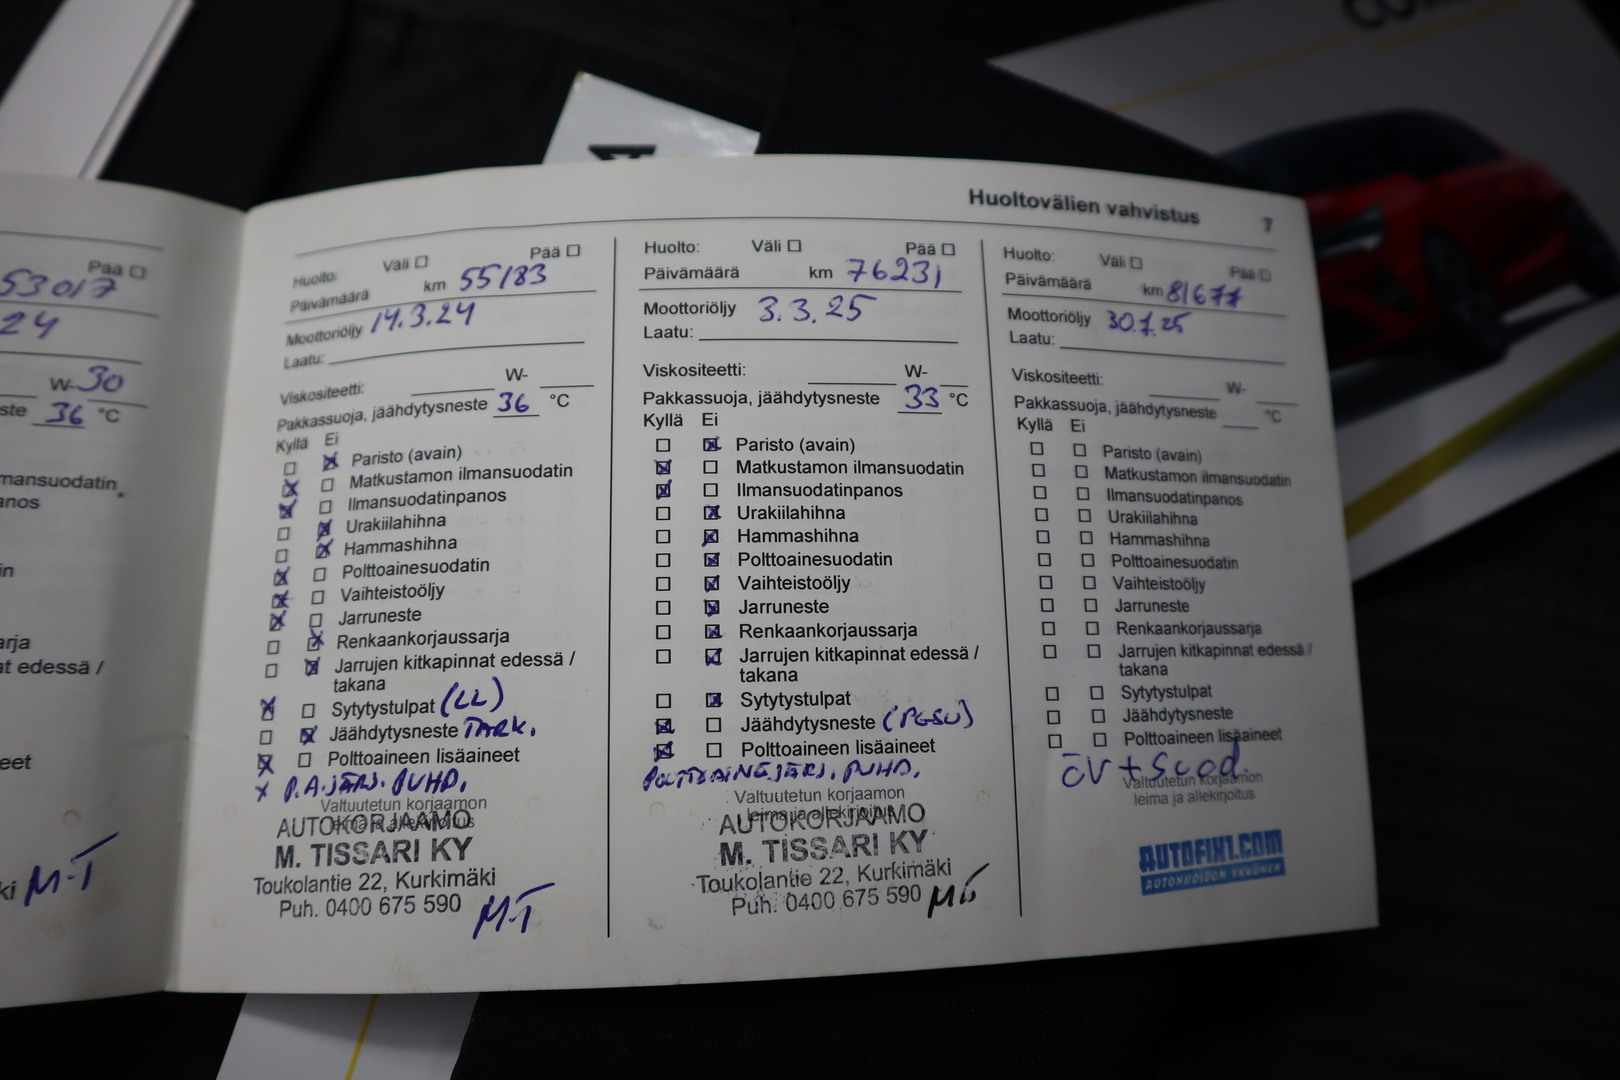 Pää ☐
53017
24
W-30
ste 36 °C
mansuodatin
anos
in
arja
at edessä /
eet
ki M-T
Huoltovälien vahvistus 7
Huolto: Väli ☐ Pää ☐
Päivämäärä km 55183
Moottoriöljy 14.3.24
Laatu:
Viskositeetti: W-
Pakkassuoja, jäähdytysneste 36 °C
Kyllä Ei
☐ ☒ Paristo (avain)
☒ ☐ Matkustamon ilmansuodatin
☒ ☐ Ilmansuodatinpanos
☐ ☒ Urakiilahihna
☐ ☒ Hammashihna
☒ ☐ Polttoainesuodatin
☒ ☐ Vaihteistoöljy
☒ ☐ Jarruneste
☐ ☒ Renkaankorjaussarja
☐ ☒ Jarrujen kitkapinnat edessä /
takana
☒ ☐ Sytytystulpat (LL)
☐ ☒ Jäähdytysneste TARK.
☒ ☐ Polttoaineen lisäaineet
x P.A.JÄRJ. PUHD.
Valtuutetun korjaamon
leima ja allekirjoitus
AUTOKORJAAMO
M. TISSARI KY
Toukolantie 22, Kurkimäki
Puh. 0400 675 590
M-T
Huolto: Väli ☐ Pää ☐
Päivämäärä km 76231
Moottoriöljy 3.3.25
Laatu:
Viskositeetti: W-
Pakkassuoja, jäähdytysneste 33 °C
Kyllä Ei
☐ ☒ Paristo (avain)
☒ ☐ Matkustamon ilmansuodatin
☒ ☐ Ilmansuodatinpanos
☐ ☒ Urakiilahihna
☐ ☒ Hammashihna
☐ ☒ Polttoainesuodatin
☐ ☒ Vaihteistoöljy
☐ ☒ Jarruneste
☐ ☒ Renkaankorjaussarja
☐ ☒ Jarrujen kitkapinnat edessä /
takana
☐ ☒ Sytytystulpat
☒ ☐ Jäähdytysneste
☒ ☐ Polttoaineen lisäaineet
POLTTOAINEJÄRJ. PUHD.
Valtuutetun korjaamon
leima ja allekirjoitus
AUTOKORJAAMO
M. TISSARI KY
Toukolantie 22, Kurkimäki
Puh. 0400 675 590
Huolto: Väli ☐ Pää ☐
Päivämäärä km 81677
Moottoriöljy 30.7.25
Laatu:
Viskositeetti: W-
Pakkassuoja, jäähdytysneste °C
Kyllä Ei
☐ ☐ Paristo (avain)
☐ ☐ Matkustamon ilmansuodatin
☐ ☐ Ilmansuodatinpanos
☐ ☐ Urakiilahihna
☐ ☐ Hammashihna
☐ ☐ Polttoainesuodatin
☐ ☐ Vaihteistoöljy
☐ ☐ Jarruneste
☐ ☐ Renkaankorjaussarja
☐ ☐ Jarrujen kitkapinnat edessä /
takana
☐ ☐ Sytytystulpat
☐ ☐ Jäähdytysneste
☐ ☐ Polttoaineen lisäaineet
ÖV + Suod.
Valtuutetun korjaamon
leima ja allekirjoitus
AUTOFIX1.COM
AUTONHOIDON YKKÖNEN